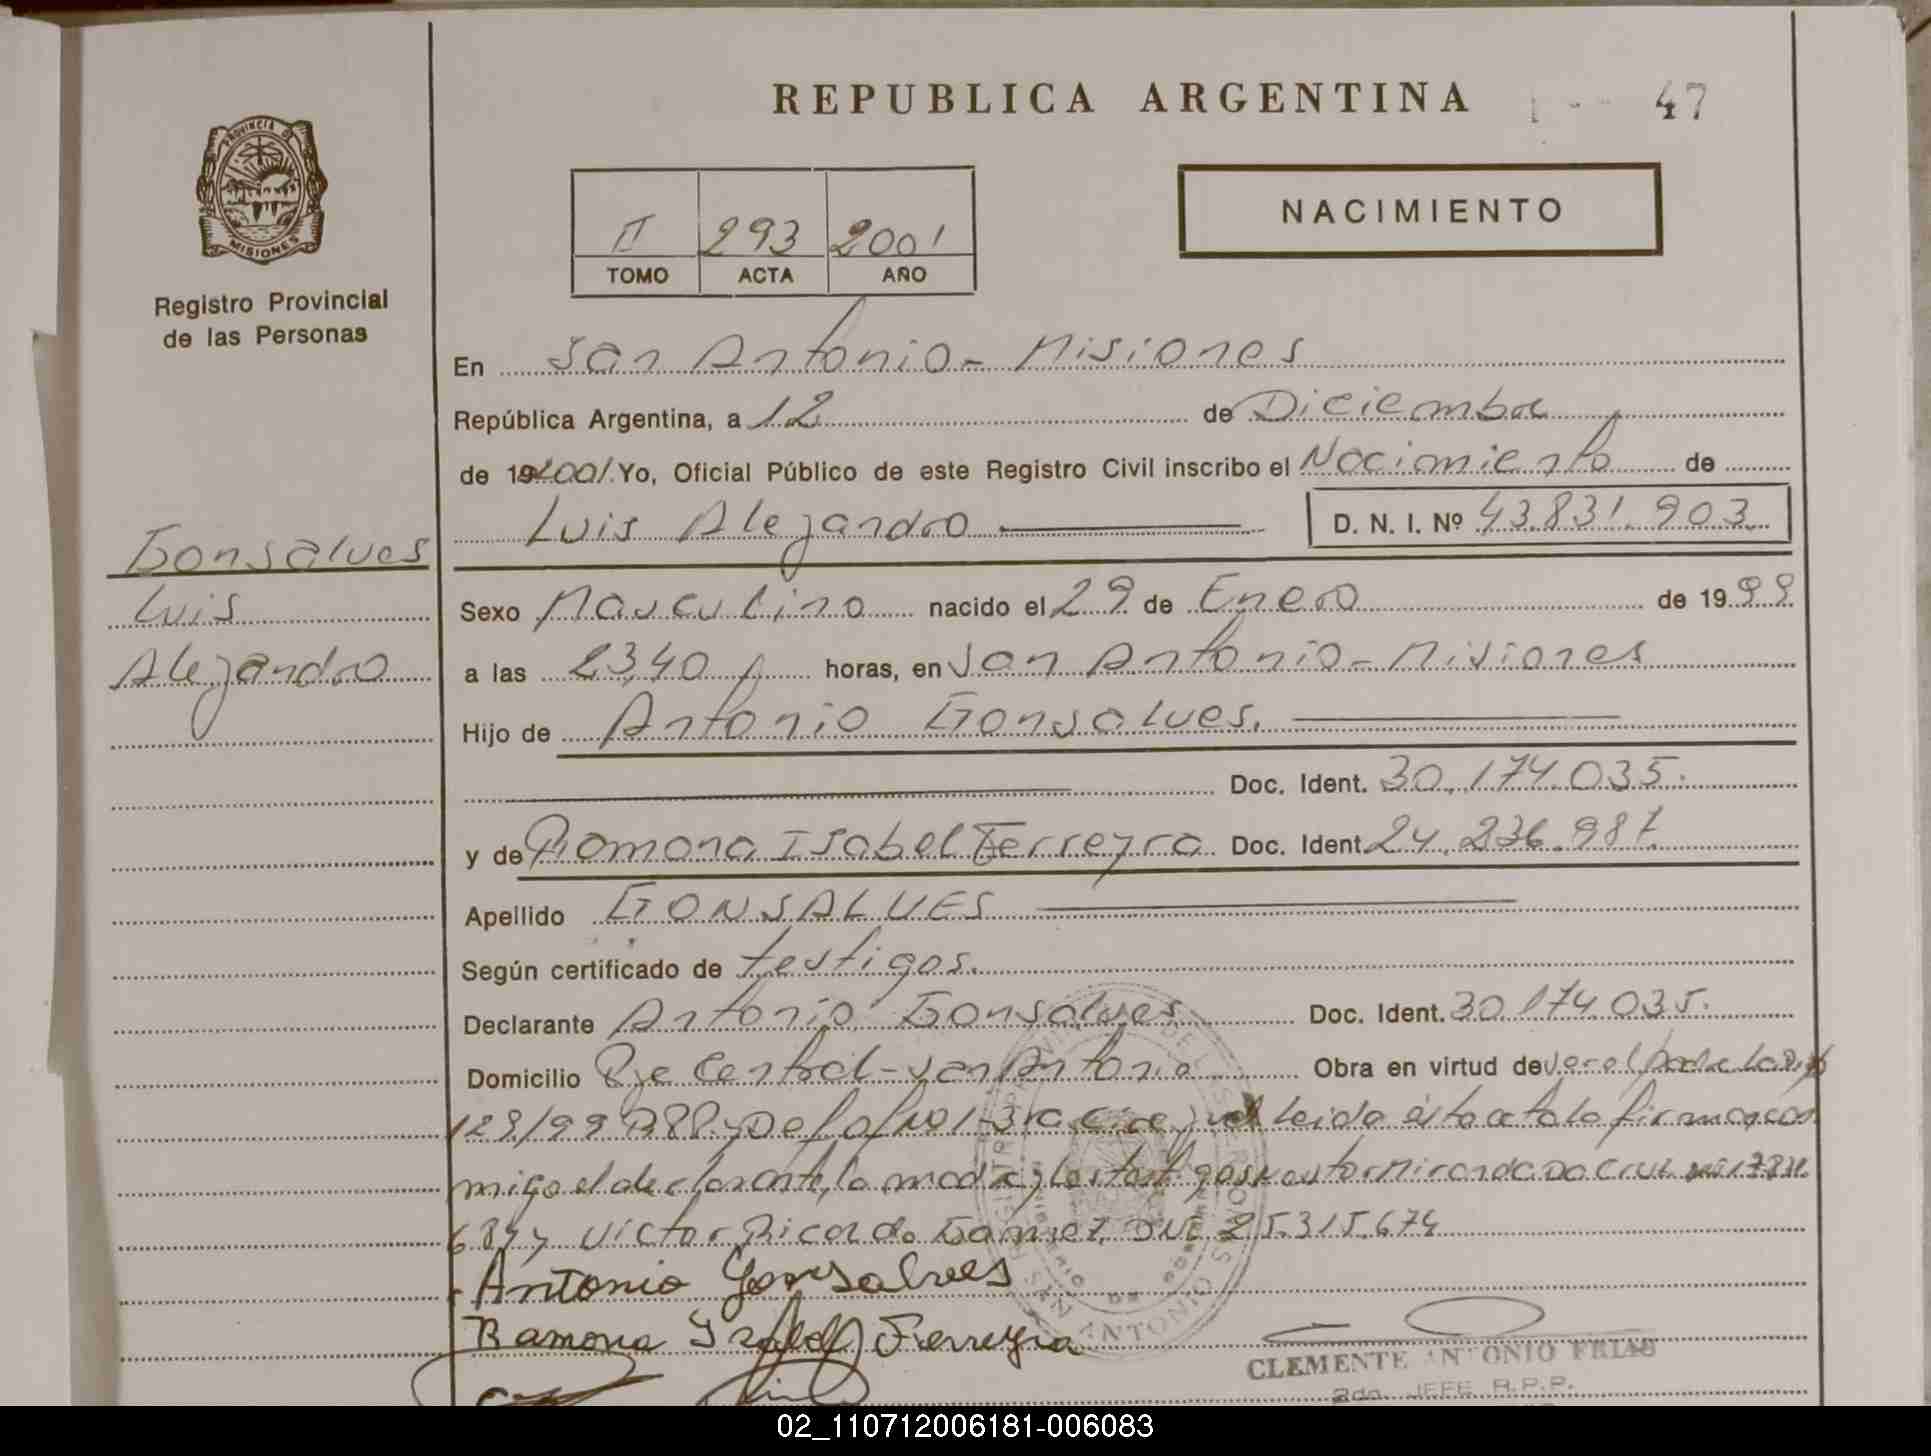 REPUBLICA ARGENTINA
47
PROVINCIA DE
MISIONES
Registro Provincial
de las Personas
II 293 2001
TOMO ACTA AÑO
NACIMIENTO
En San Antonio - Misiones
República Argentina, a 12 de Diciembre
de 19 2001. Yo, Oficial Público de este Registro Civil inscribo el Nacimiento de
Luis Alejandro D. N. I. Nº 43.831.903.
Gonsalves
Luis
Alejandro
Sexo Masculino nacido el 29 de Enero de 1999
a las 23,40 horas, en San Antonio - Misiones
Hijo de Antonio Gonsalves.
Doc. Ident. 30.174.035.
y de Ramona Isabel Ferreyra Doc. Ident. 24.236.987.
Apellido GONSALVES
Según certificado de testigos.
Declarante Antonio Gonsalves Doc. Ident. 30.174.035.
Domicilio Bje Central - San Antonio Obra en virtud de
129/99 leida esta acta la firman con
migo el declarante, la madre y los testigos Nestor Miranda Da Cruz
y Victor Ricardo Gamez DNI 25.315.674
Antonio Gonsalves
Ramona Isabel Ferreyra
CLEMENTE ANTONIO FRIAS
2do. JEFE R.P.P.
SAN ANTONIO
02_110712006181-006083